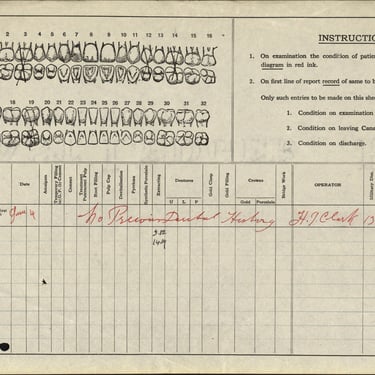 2 3 4 5 6 7 8 9 10 11 12 13 14 15 16
18 19 20 21 22 23 24 25 26 27 28 29 30 31 32
INSTRUCTIO
1. On examination the condition of patie
diagram in red ink.
2. On first line of report record of same to b
Only such entries to be made on this she
1. Condition on examination
2. Condition on leaving Cana
3. Condition on discharge.
Date Amalgam Cement Root Filling Pulp Cap Devitalization Synthetic Porcelain Extracting Dentures U L P Gold Clasp Gold Filling Crowns Gold Porcelain Bridge Work OPERATOR Military Dist.
No Previous Dental History H.J. Clark 13